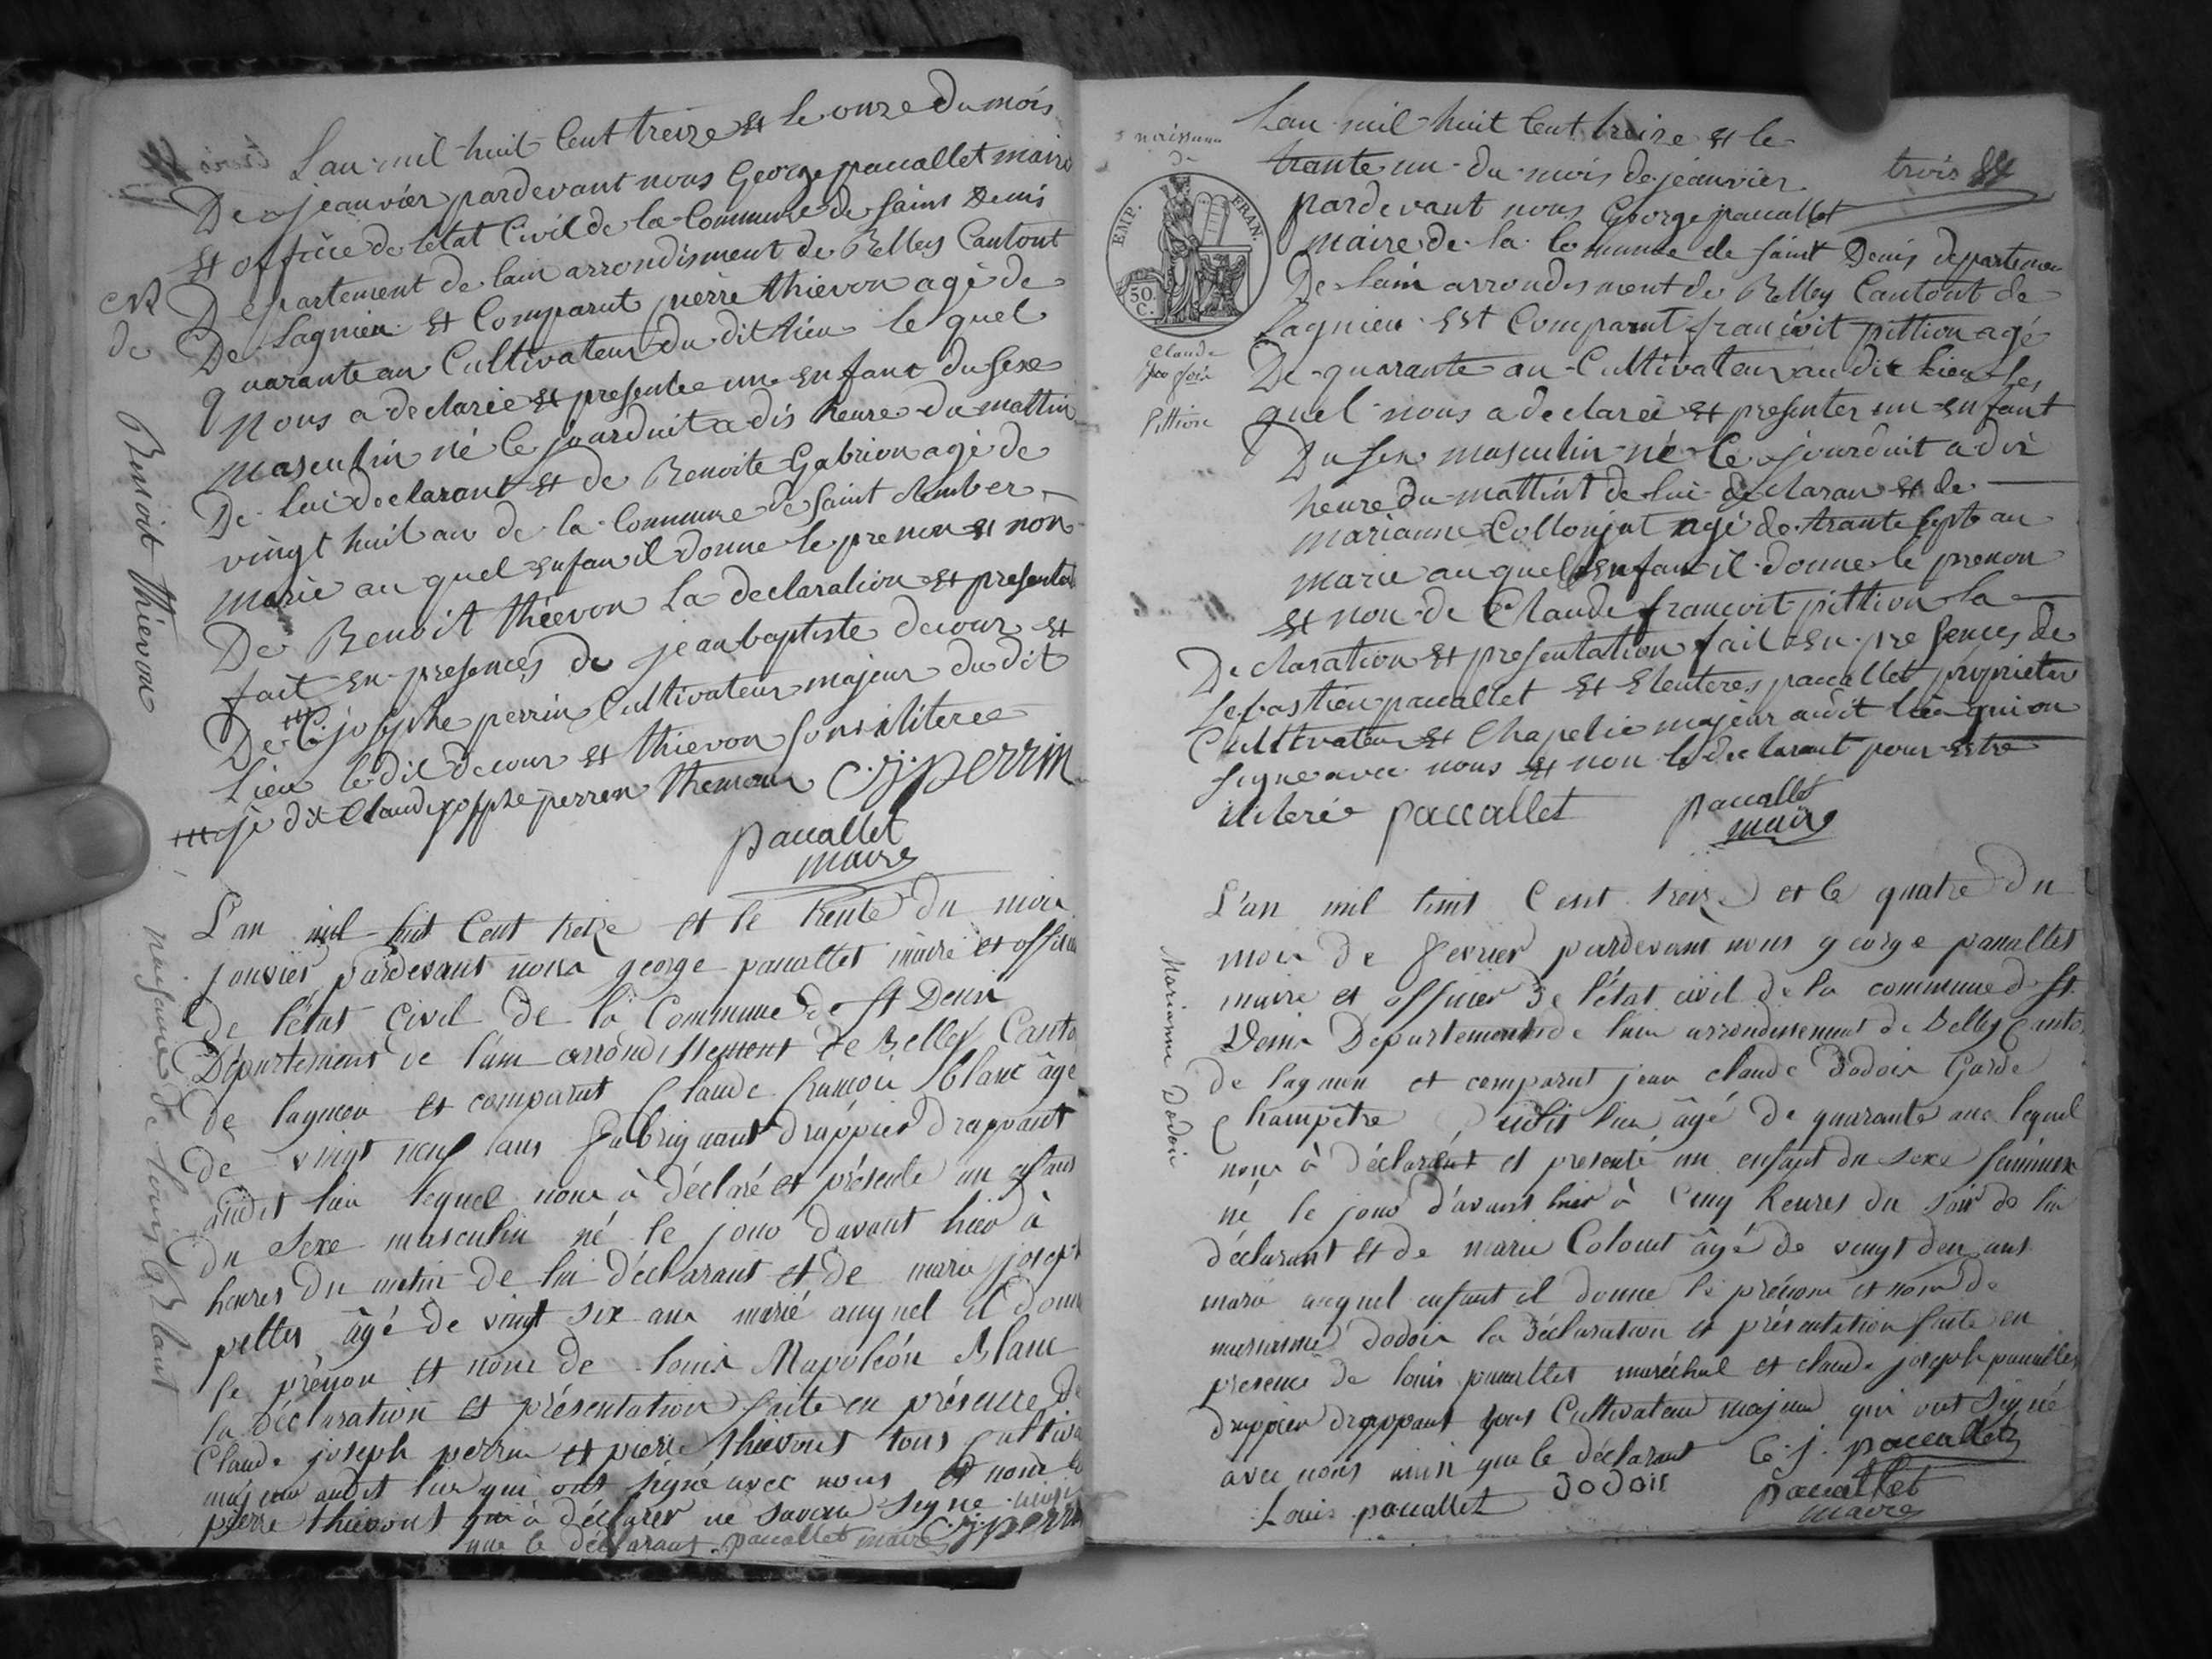 L'an mil huit Cent treize Et le onze du mois
De jeanvier pardevant nous George paccallet maire
Et officie de letat Civil de la Commune de saint Denis
Departement de lain arrondisment de Belley Cantont
De Lagnieu Et Comparut pierre thievon agé de
quarante an Cultivateur du dit lieu le quel
nous a declarée Et presentée un enfant du sexe
masculin né le jourduit a dis heure du mattin
De lui declarant Et de Benoite Gabrion agé de
vingt huit an de la Commune de saint
marie au quel enfan il donne le prenon Et non
De Benoit thievon La declaration Et presentation
fait en presences de jean baptiste decour Et
De C. josephe perrin Cultivateur majeur du dit
Lieu le dit decour Et thievon son iliteree
je dit Claude josephe perren C.j. perrin
paccallet
maire
N
de
Benoit thievon
L'an mil huit Cent treize et le trente du mois
janvier pardevant nous george paccallet maire et officier
de l'état civil de la Commune de St Denis
Département de l'ain arrondissement de Belley Canto
de lagnieu et comparut Claude françois Blanc âgé
de vingt neuf ans drappier drappant
audit lieu lequel nous à déclaré et présenté un enfant
du sexe masculin né le jour d'avant hier à
heures du matin de lui déclarant et de marie joseph
âgé de vingt six ans marié auquel il donne
le prénon et nom de Louis Napoléon Blanc
la déclaration et présentation faite en présence de
Claude joseph perrin et pierre thievont tous Cultiva
majeur audit lieu qui ont signé avec nous et non le
pierre thievont qui à déclarer ne savoir signe
que le déclarant. paccallet maire C.j. perrin
naissance de Louis Blanc
L'an mil huit Cent treize Et le
trante un du mois de jeanvier
trois
pardevant nous George paccallet
maire de la Commune de saint Denis departemen
De lain arrondisment de Belley Cantont de
Lagnieu Est Comparut françoit pittion agé
De quarante an Cultivateur au dit lieu les
quel nous a declarée Et presenter un enfant
Du sex masculin né le jourduit a dix
heure du mattint de lui declaran Et de
marianne Collonjat agé de trante sept an
marie au quel enfan il donne le prenon
Et non de Claude françoit pittion la
Declaration Et presentation fait en presences de
sebastien paccallet Et Eleuteres paccallet proprieter
Cultivateur Et Chapelie majeur audit lieu qui on
signe avec nous Et non le declarant pour estre
iliterée paccallet paccallet
maire
naissance
de
EMP. FRAN.
50.
C.
Claude
Pittion
L'an mil huit Cent treize et le quatre du
mois de fevrier pardevant nous george paccallet
maire et officier de l'état civil de la commune de St
Denis Departement de l'ain arrondissement de Belley Canto
de lagnieu et comparut jean claude Dodoin Garde
Champêtre audit lieu âgé de quarante ans lequel
nous à déclaré et presenté un enfant du sexe féminin
né le jour d'avant hier à Cinq heures du soir de lui
déclarant et de marie Colomt âgé de vingt deux ans
marie auquel enfant il donne le prénom et nom de
marianne dodoin la déclaration et présentation faite en
presence de louis paccallet maréchal et claude joseph paccallet
drappier drappant tous Cultivateur majeur qui ont signé
avec nous ainsi que le déclarant C. j. paccallet
Louis paccallet Dodoin paccallet
maire
Marianne Dodoin